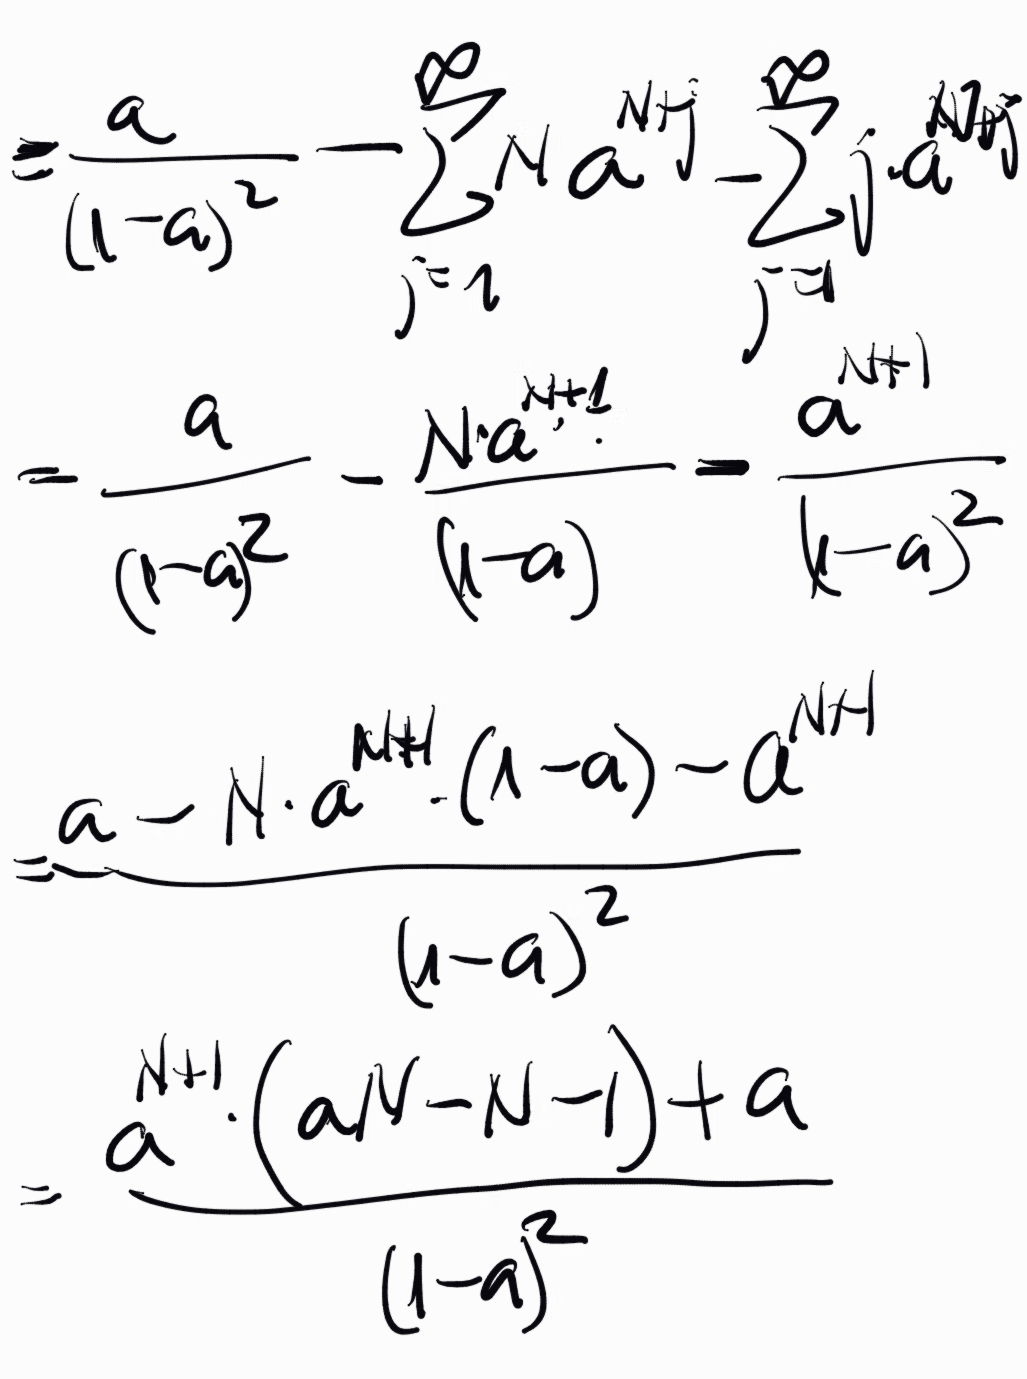 = a/(1-a)^2 - ∑_{j=1}^{∞} N a^{N+j} - ∑_{j=1}^{∞} j·a^{N+j}
= a/(1-a)^2 - N·a^{N+1}/(1-a) - a^{N+1}/(1-a)^2
= (a - N·a^{N+1}·(1-a) - a^{N+1})/(1-a)^2
= (a^{N+1}·(aN-N-1)+a)/(1-a)^2